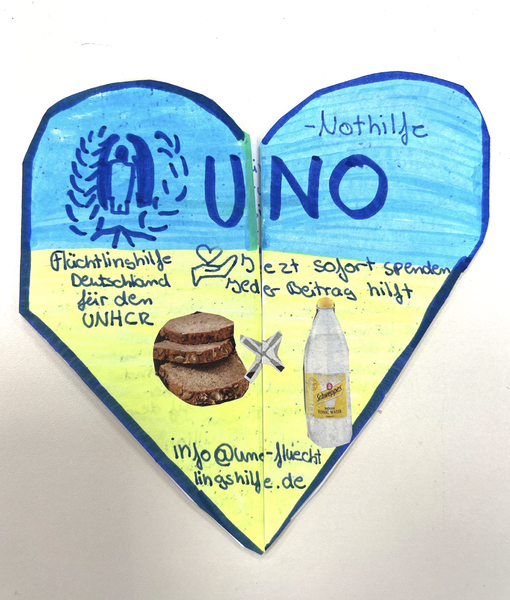 -Nothilfe
UNO
Flüchtlinshilfe
Deutschland
für den
UNHCR
Jezt sofort spenden
Jeder Beitrag hilft
Schweppes
TONIC WATER
info@uno-fluecht
lingshilfe.de